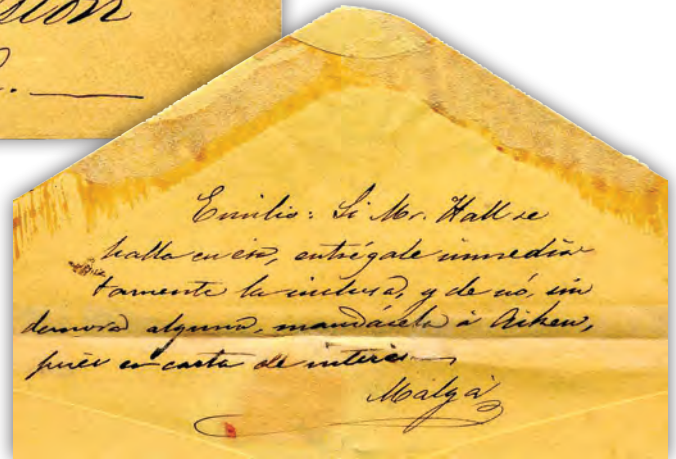 Emilio: Si Mr. Hall se
halla en esa, entrégale inmedia
tamente la inclusa, y de nó, sin
demora alguna, mandásela á Aiken,
pues es carta de interes.
Malgá